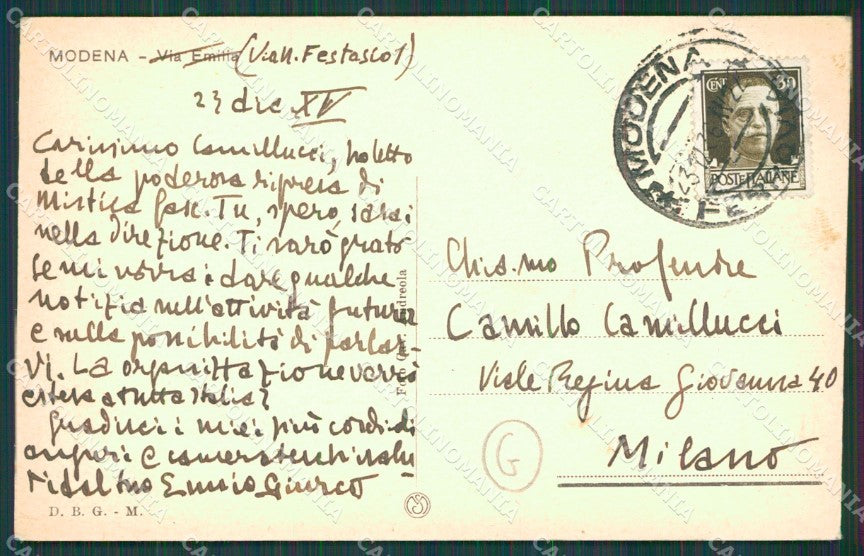 MODENA - Via Emilia (Viall. Festasio 1)
23 dic XV
Carissimo Camillucci, ho letto
della poderosa ripresa di
Mistica fasc. Tu, spero, sarai
nella direzione. Ti sarò grato
se mi vorrai dare qualche
notizia sull'attività futura
e sulla possibilità di parlar-
vi. La organizzazione verrà
estesa a tutta Italia?
Gradisci i miei più cordiali
auguri e camerateschi salu-
ti dal tuo Ennio Giurco
D. B. G. - M.
Andreola
MODENA
FERROVIA
CENT 30
POSTE ITALIANE
Chia.mo Professore
Camillo Camillucci
Viale Regina Giovanna 40
Milano
G
CARTOLINOMANIA